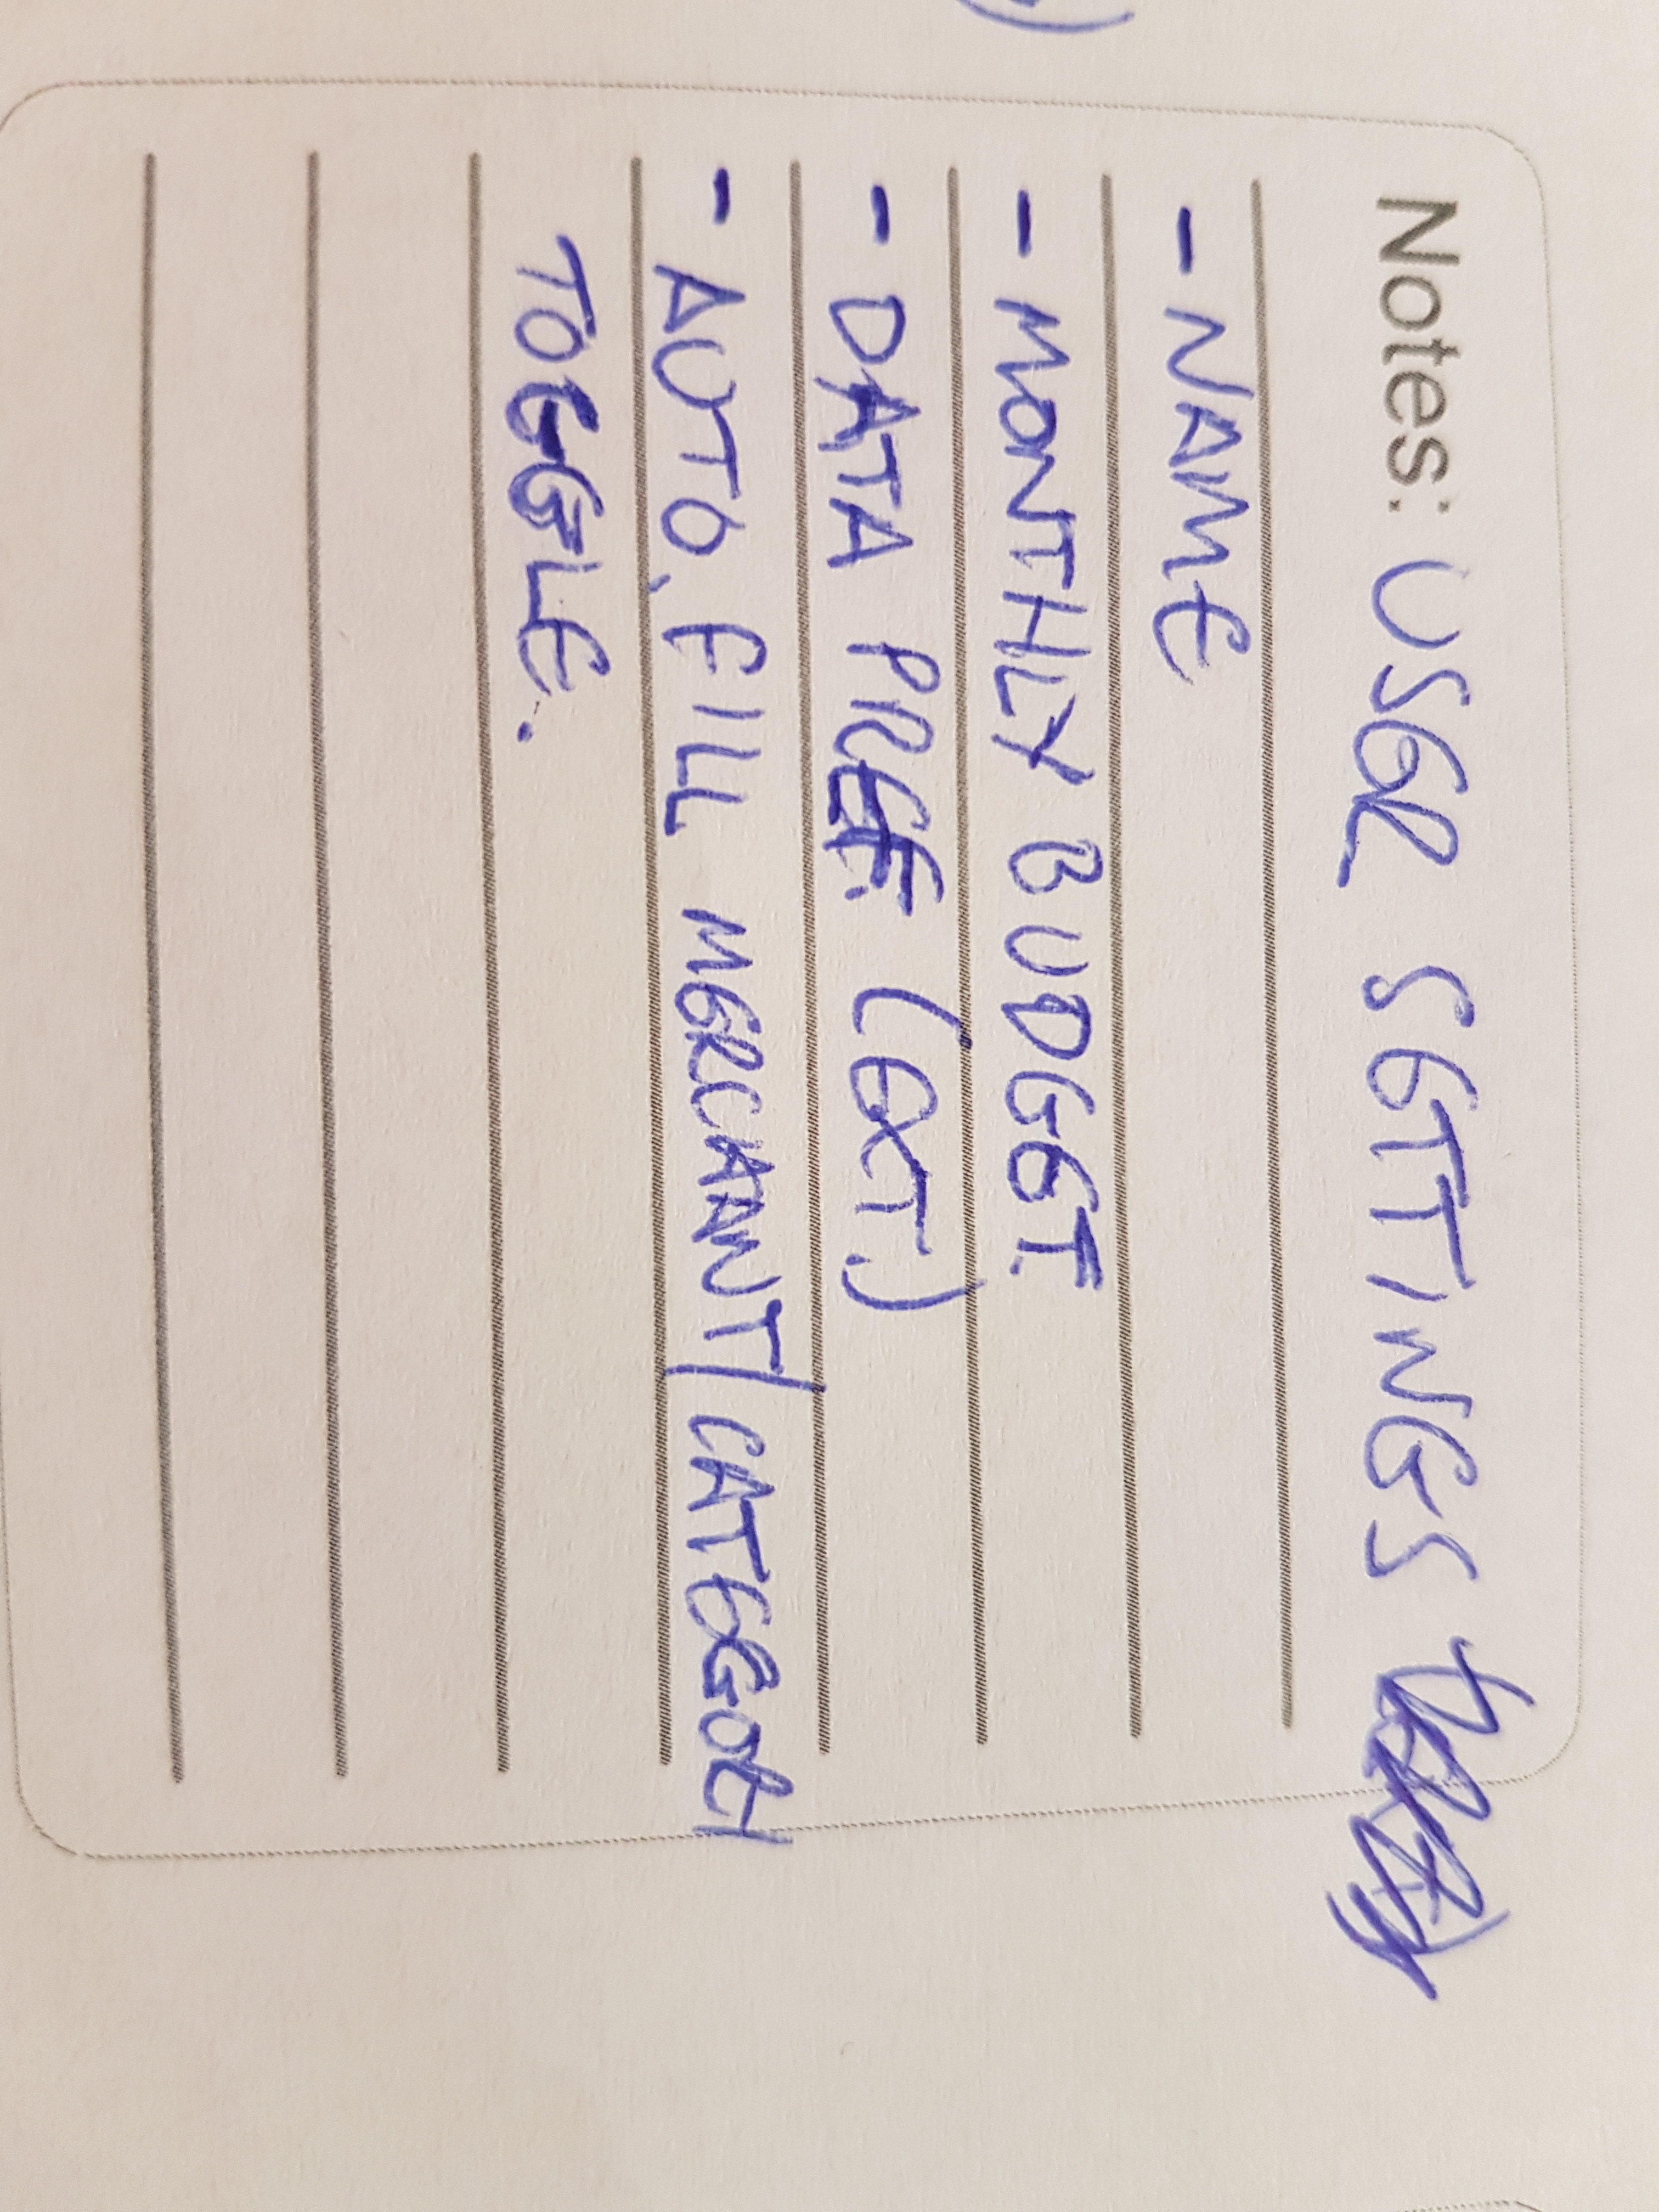 Notes: USER SETTINGS
- NAME
- MONTHLY BUDGET
- DATA PREF. (EXT.)
- AUTO.FILL MERCHANT/CATEGORY
TOGGLE.